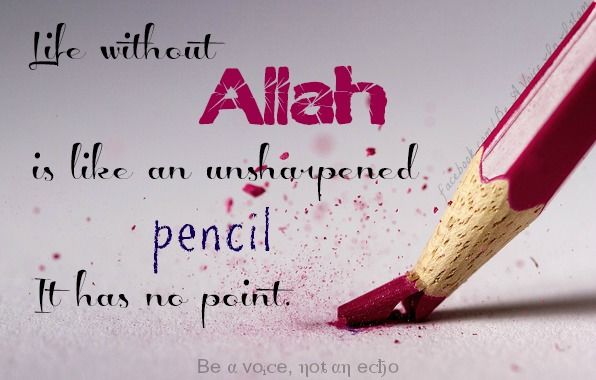 Life without
Allah
is like an unsharpened
pencil
It has no point.
Be a voice, not an echo